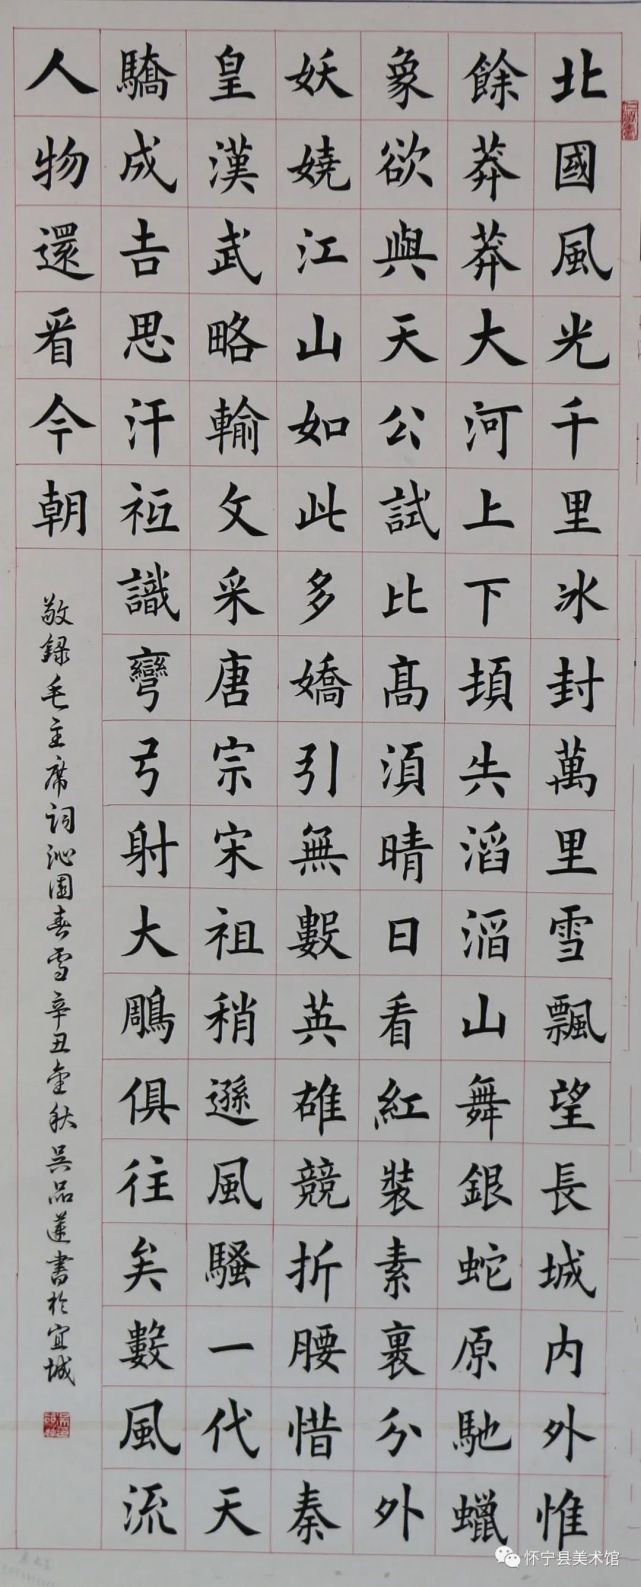 北國風光千里冰封萬里雪飄望長城内外惟
餘莽莽大河上下頓失滔滔山舞銀蛇原馳蠟
象欲與天公試比髙須晴日看紅裝素裹分外
妖嬈江山如此多嬌引無數英雄競折腰惜秦
皇漢武略輸文采唐宗宋祖稍遜風騷一代天
驕成吉思汗祇識彎弓射大鵰俱往矣數風流
人物還看今朝
敬録毛主席词沁園春雪辛丑金秋吴品蓮書於宜城
怀宁县美术馆